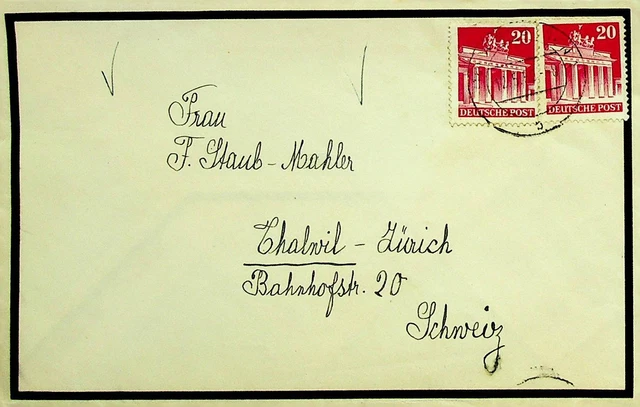 20 20
DEUTSCHE POST DEUTSCHE POST
Frau
F. Staub-Mahler
Thalwil - Zürich
Bahnhofstr. 20
Schweiz